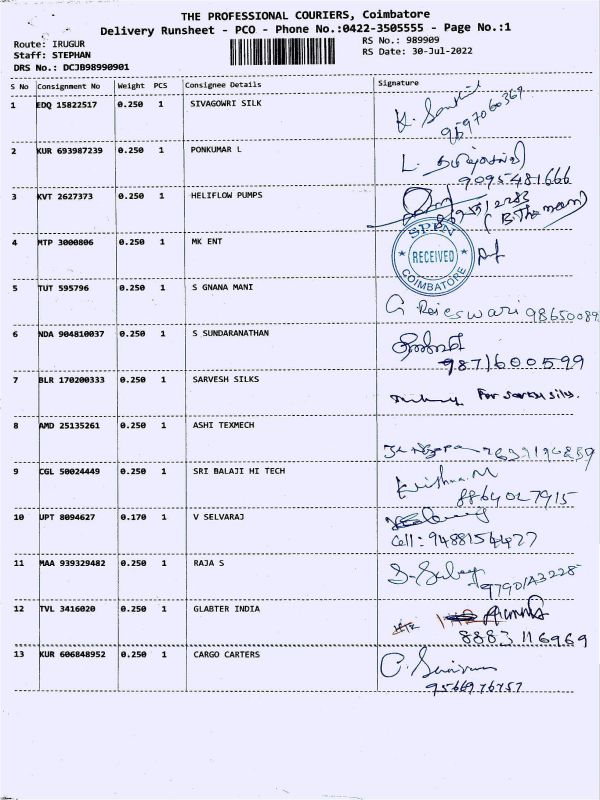 THE PROFESSIONAL COURIERS, Coimbatore
Delivery Runsheet - PCO - Phone No.:0422-3505555 - Page No.:1
Route: IRUGUR RS No.: 989909
Staff: STEPHAN RS Date: 30-Jul-2022
DRS No.: DCJB98990901
S No Consignment No Weight PCS Consignee Details Signature
1 EDQ 15822517 0.250 1 SIVAGOWRI SILK
9597060369
2 KUR 693987239 0.250 1 PONKUMAR L
9095481666
3 KVT 2627373 0.250 1 HELIFLOW PUMPS
4 MTP 3000806 0.250 1 MK ENT
RECEIVED
COIMBATORE
5 TUT 595796 0.250 1 S GNANA MANI
6 NDA 904810037 0.250 1 S SUNDARANATHAN
9871600599
7 BLR 170200333 0.250 1 SARVESH SILKS
8 AMD 25135261 0.250 1 ASHI TEXMECH
9 CGL 50024449 0.250 1 SRI BALAJI HI TECH
Krishna.M
8864027915
10 UPT 8094627 0.170 1 V SELVARAJ
Cell: 9488154477
11 MAA 939329482 0.250 1 RAJA S
12 TVL 3416020 0.250 1 GLABTER INDIA
8883116969
13 KUR 606848952 0.250 1 CARGO CARTERS
9566976757